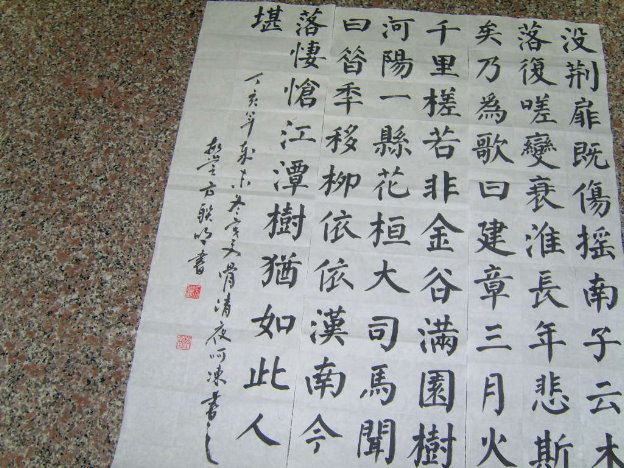 没荆扉既傷摇南子云木
落復嗟變衰淮長年悲斯
矣乃為歌曰建章三月火
千里槎若非金谷滿園樹
河陽一縣花桓大司馬聞
曰昔秊移柳依依漢南今
落悽愴江潭樹猶如此人
堪
丁亥年歲末冬 清夜呵凍書之
書